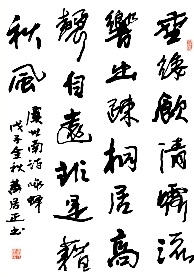 垂緌飲清露流
響出疎桐居高
聲自遠非是藉
秋風
虞世南诗咏蝉
戊子金秋居正书